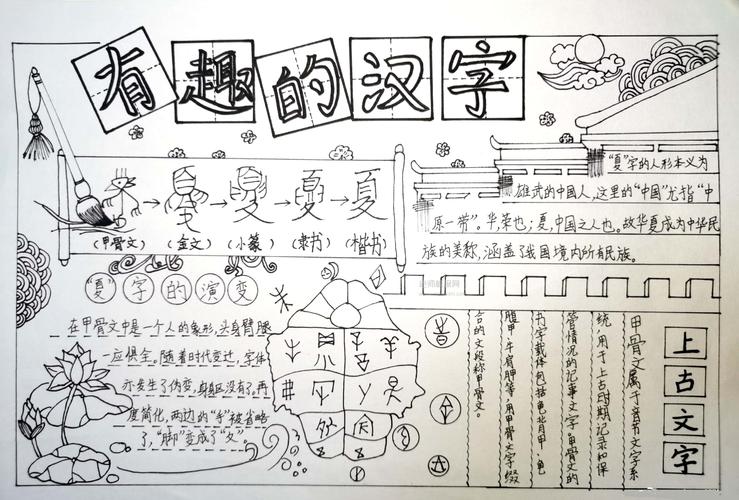 有趣的汉字
(甲骨文) (金文) (小篆) (隶书) (楷书)
"夏"字的人形本义为
雄武的中国人，这里的"中国"尤指"中
原一带"。华，荣也；夏，中国之人也。故华夏成为中华民
族的美称，涵盖了我国境内所有民族。
"夏"字的演变
在甲骨文中是一个人的象形，头身臂腿
一应俱全。随着时代变迁，字体
亦发生了伪变，身躯没有了。再
度简化，两边的"手"被省略
了，"脚"变成了"夂"。
上古文字
甲骨文属于音节文字系
统，用于上古时期记录和保
管情况的记事文字。甲骨文的
书字载体包括龟背甲、龟
腹甲、牛肩胛等，用甲骨文字缀
合的文段称甲骨文。